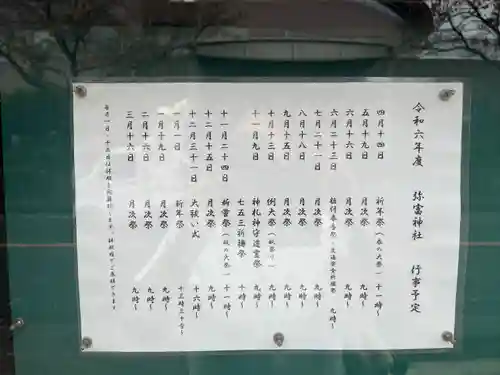 令和六年度 弥富神社 行事予定
四月十四日 祈年祭(春の大祭) 十一時〜
五月十九日 月次祭 九時〜
六月十六日 月次祭 九時〜
六月二十三日 九時〜
七月二十一日 月次祭 九時〜
八月十八日 月次祭 九時〜
九月十五日 月次祭 九時〜
十月十三日 例大祭 九時〜
十一月九日 神札神守遷霊祭 九時〜
七五三祈祷 十時〜
十一月二十四日 新嘗祭(秋の大祭) 十一時〜
十二月十五日 月次祭 九時〜
十二月三十一日 大祓い式 十六時〜
一月一日 新年祭 十三時三十分〜
一月十九日 月次祭 九時〜
二月十六日 月次祭 九時〜
三月十六日 月次祭 九時〜